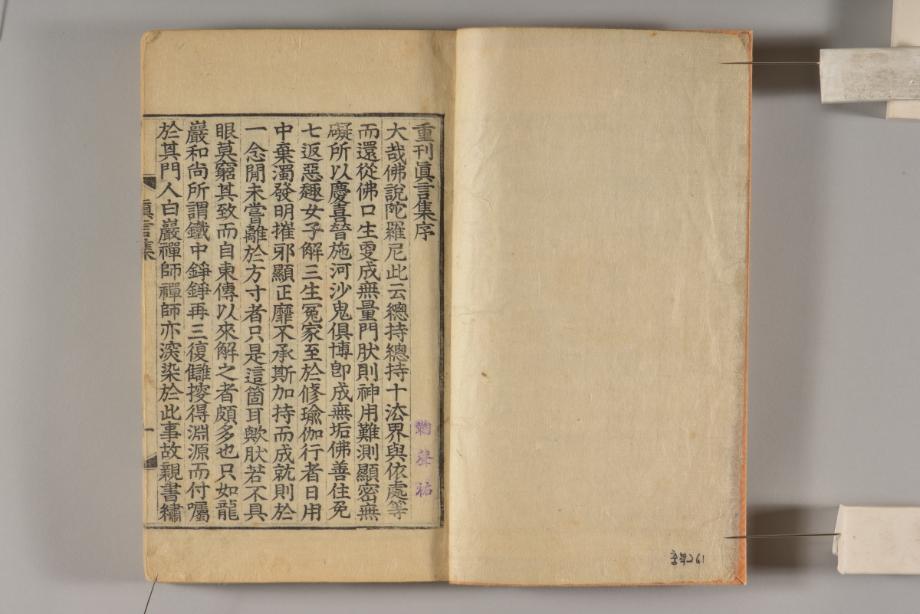 重刊眞言集序
大哉佛說陀羅尼此云總持總持十法界與依處等
而還從佛口生爰成無量門肰則神用難測顯密無
礙所以慶喜晉施河沙鬼俱博卽成無垢佛善住免
七返惡趣女子解三生冤家至於修瑜伽行者日用
中棄濁發明摧邪顯正靡不承斯加持而成就則於
一念閒未嘗離於方寸者只是這箇耳歟肰若不具
眼莫窮其致而自東傳以來解之者頗多也只如龍
巖和尚所謂鐵中錚錚再三復讎挍得淵源而付囑
於其門人白巖禪師禪師亦深染於此事故親書繡
眞言集
一